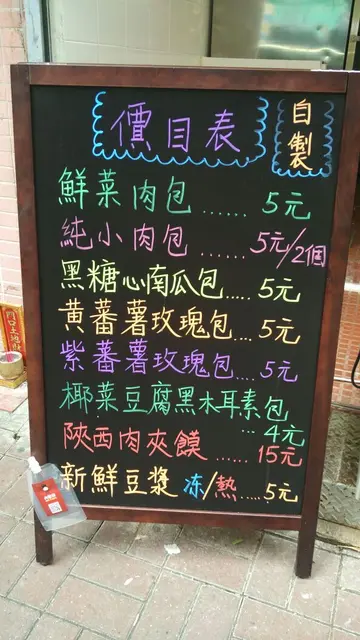 價目表
自製
鮮菜肉包......5元
純小肉包......5元/2個
黑糖心南瓜包.....5元
黃蕃薯玫瑰包....5元
紫蕃薯玫瑰包....5元
椰菜豆腐黑木耳素包
...4元
陝西肉夾饃......15元
新鮮豆漿 冻/熱.....5元